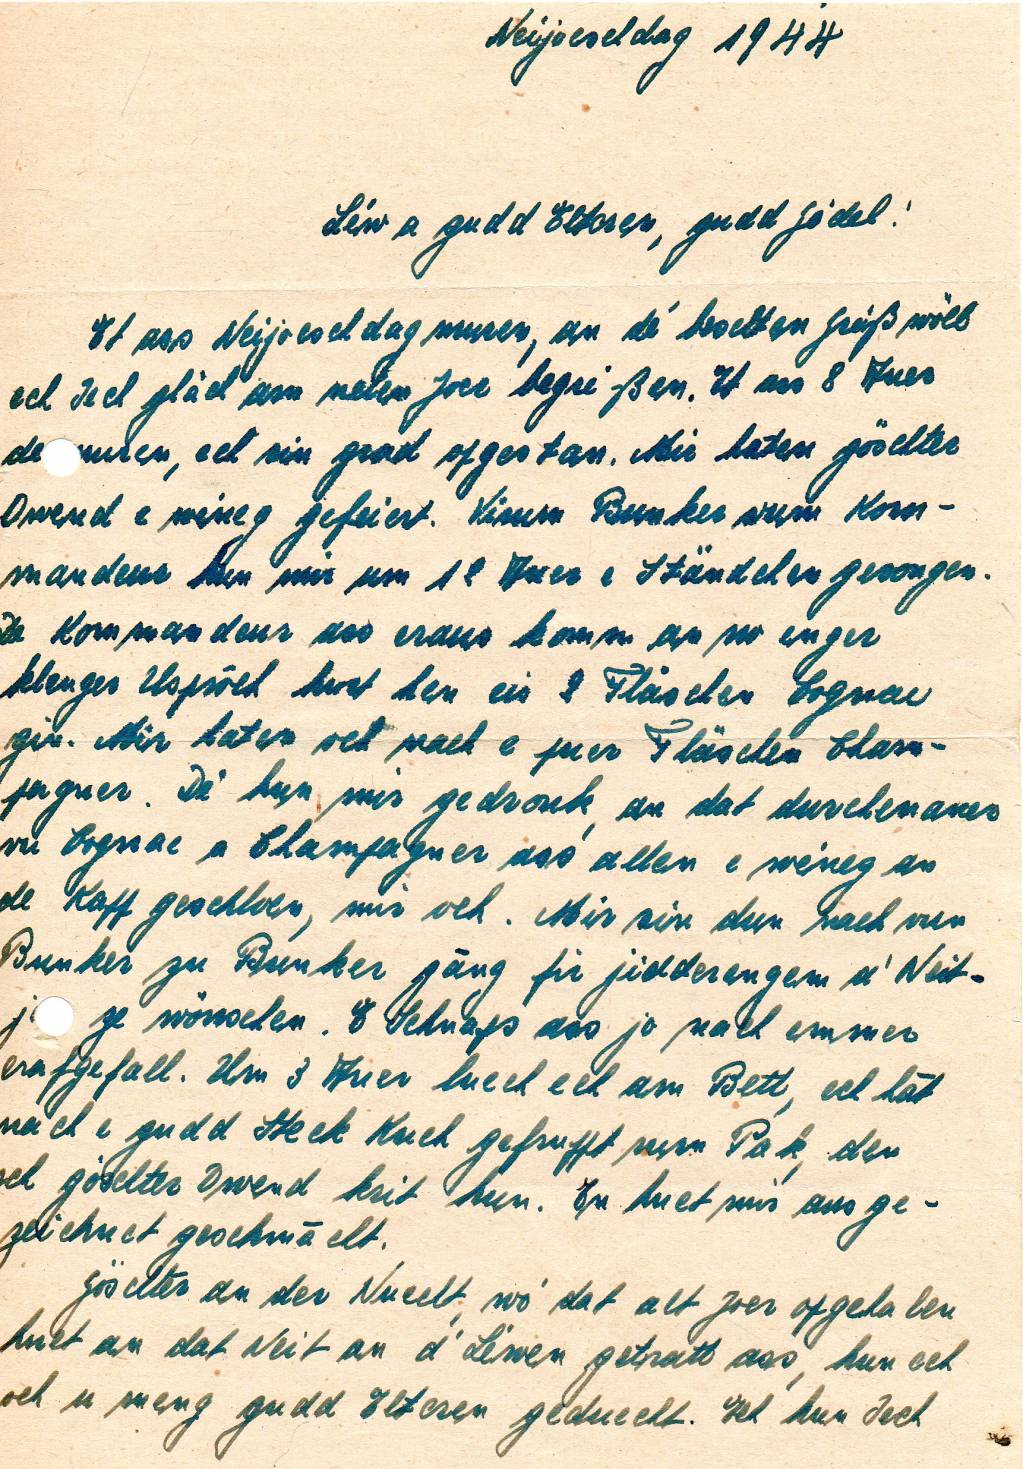 Neijoeschdag 1944
Léw a gudd Elteren, gudd Gödel!
Et ass Neijoeschdagmuren, an dé beschten Gréiß wöll
ech Iech gläch am neien Joer begréißen. Et ass 8 Auer
de muren, ech sin grad opgestan. Mir haten göschter
Owend e wéneg gefeiert. Virum Bunker vum Kom-
mandeur hun mir um 12 Auer e Ständchen gesongen.
De Kommandeur ass eraus komm an no enger
klenger Usproch huet hen eis 2 Fläschen Cognac
gin. Mir haten och nach e puer Fläschen Cham-
pagner. Dé hun mir gedronk, an dat durchenaner
vu Cognac a Champagner ass allen e wéneg an
de Kapp geschloen, mir och. Mir sin dun nach vun
Bunker zu Bunker gäng fir jidderengem d' Neit-
j ze wönschen. E Schnaps ass jo nach emmer
erofgefall. Um 3 Auer luch ech am Bett, ech hat
nach e gudd Steck Kuch gefrupft vum Pak, den
ech göschter Owend krit hun. En huet mir ausge-
zeichnet geschmächt.
Göschter an der Nuecht, wó dat alt Joer opgehalen
huet an dat Neit an d' Léwen getratt ass, hun ech
och u meng gudd Elteren geduecht. Ech hun Iech